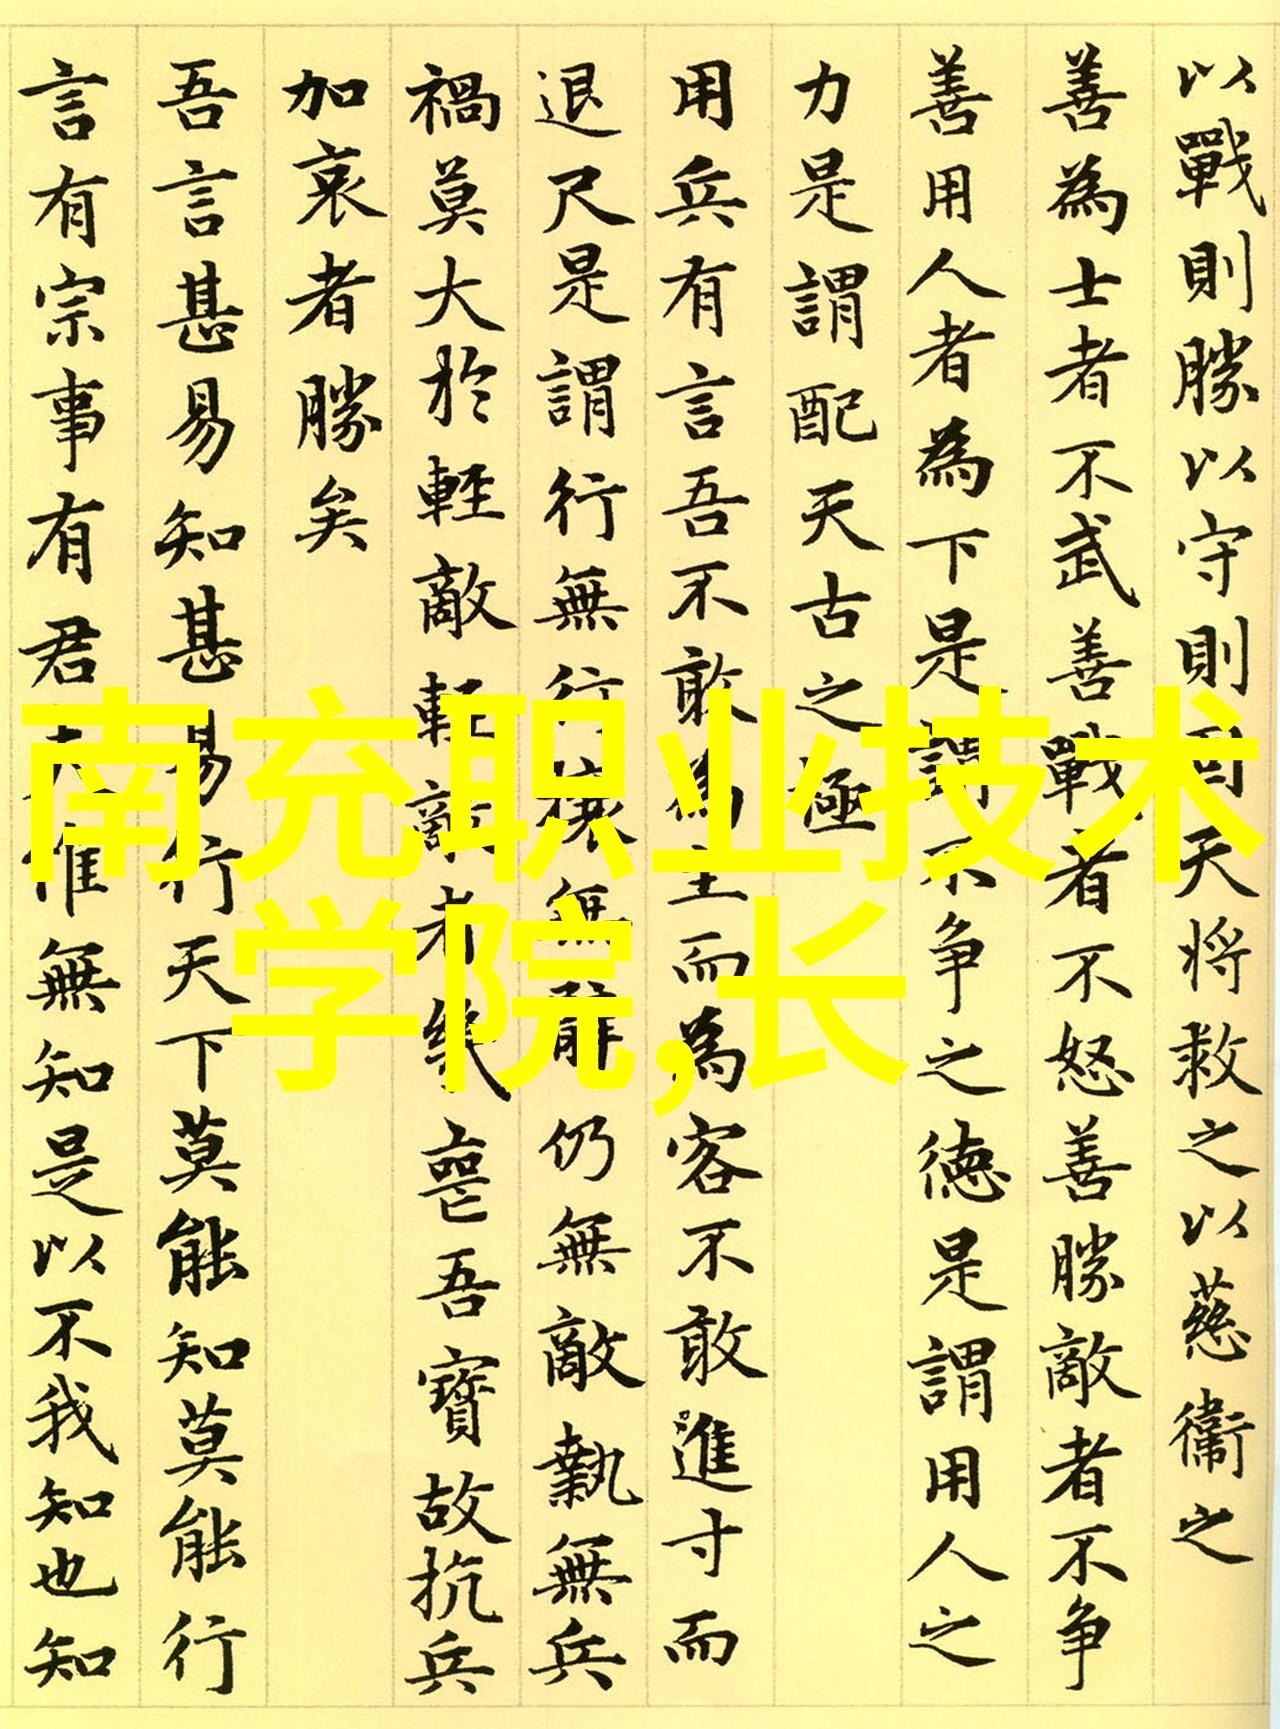 以戰則勝以守則固天將救之以慈衞之
善為士者不武善戰者不怒善勝敵者不争
善用人者為下是謂不争之德是謂用人之
力是謂配天古之極
用兵有言吾不敢為主而為客不敢進寸而
退尺是謂行無行攘無臂仍無敵執無兵
禍莫大於輕敵輕敵者幾喪吾寶故抗兵
加哀者勝矣
吾言甚易知甚易行天下莫能知莫能行
言有宗事有君夫惟無知是以不我知也知
南充职业技术
学院,长